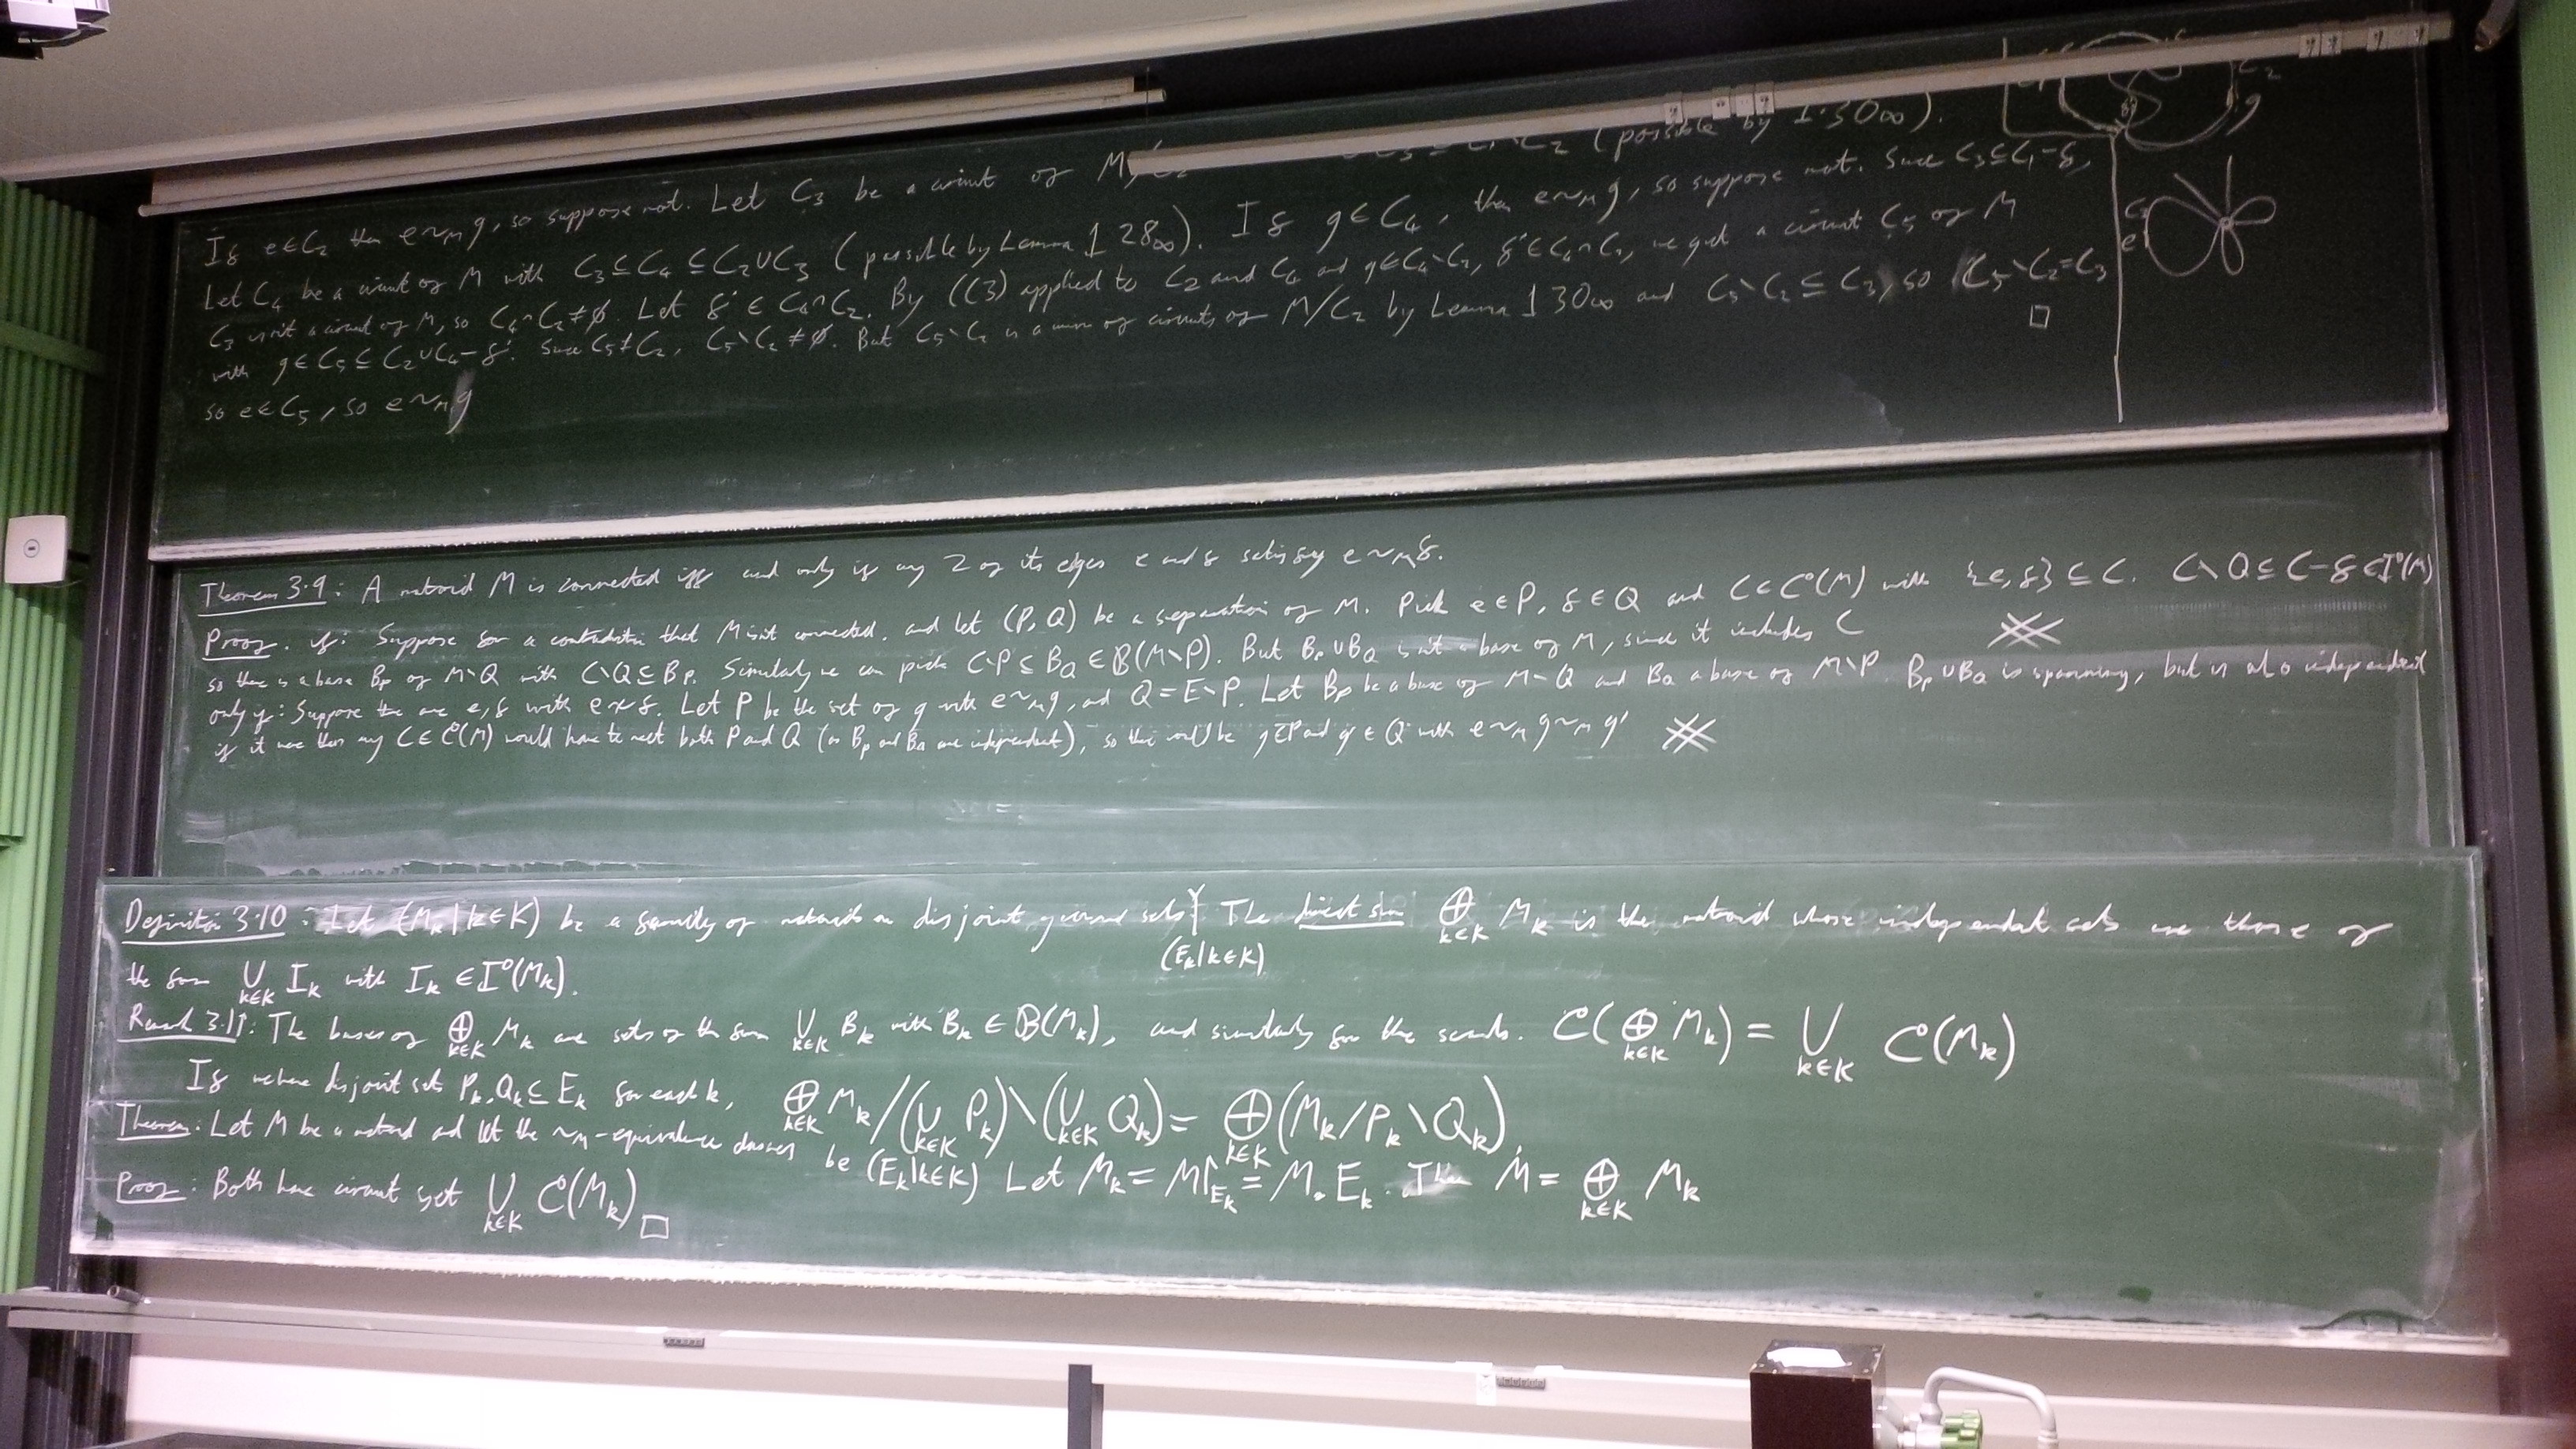 If e∈C₂ then e~ₘg, so suppose not. Let C₃ be a circuit of M/C₂ C₃ ⊆ C₁∖C₂ (possible by 1.30∞).
Let C₄ be a circuit of M with C₃⊆C₄⊆C₂∪C₃ (possible by Lemma 1 28∞). If g∈C₄, then e~ₘg, so suppose not. Since C₃⊆C₁-f,
C₃ isn't a circuit of M, so C₄∩C₂≠∅. Let f'∈C₄∩C₂. By (C3) applied to C₂ and C₄ and f'∈C₄∩C₂, we get a circuit C₅ of M
with g∈C₅⊆C₂∪C₄-f'. Since C₅≠C₂, C₅∖C₂≠∅. But C₅∖C₂ is a union of circuits of M/C₂ by Lemma 1 30∞ and C₅∖C₂⊆C₃, so C₅∖C₂=C₃
so e∈C₅, so e~ₘg □
C₂
g
C₃
e
Theorem 3.9: A matroid M is connected iff and only if any 2 of its edges e and f satisfy e~ₘf.
Proof. if: Suppose for a contradiction that M isn't connected, and let (P,Q) be a separation of M. Pick e∈P, f∈Q and C∈C(M) with {e,f}⊆C. C∖Q⊆C-f∈I(M)
so there is a base B_P of M∖Q with C∖Q⊆B_P. Similarly we can pick C∖P⊆B_Q∈B(M∖P). But B_P∪B_Q isn't a base of M, since it includes C
only if: Suppose there are e,f with e≁f. Let P be the set of g with e~ₘg, and Q=E∖P. Let B_P be a base of M∖Q and B_Q a base of M∖P. B_P∪B_Q is spanning, but is also independent
if it were then any C∈C(M) would have to meet both P and Q (as B_P and B_Q are independent), so there would be g∈P and g'∈Q with e~ₘg~ₘg'
Definition 3.10: Let (M_k|k∈K) be a family of matroids on disjoint ground sets (E_k|k∈K) The direct sum ⊕_{k∈K} M_k is the matroid whose independent sets are those of
the form ⋃_{k∈K} I_k with I_k∈I(M_k).
Remark 3.11: The bases of ⊕_{k∈K} M_k are sets of the form ⋃_{k∈K} B_k with B_k∈B(M_k), and similarly for the scrawls. C(⊕_{k∈K} M_k) = ⋃_{k∈K} C(M_k)
If we have disjoint sets P_k, Q_k⊆E_k for each k, ⊕_{k∈K} M_k/(⋃_{k∈K} P_k)∖(⋃_{k∈K} Q_k) = ⊕_{k∈K}(M_k/P_k∖Q_k).
Theorem: Let M be a matroid and let the ~ₘ-equivalence classes be (E_k|k∈K) Let M_k = M↾_{E_k} = M.E_k. Then M = ⊕_{k∈K} M_k
Proof: Both have circuit set ⋃_{k∈K} C(M_k) □